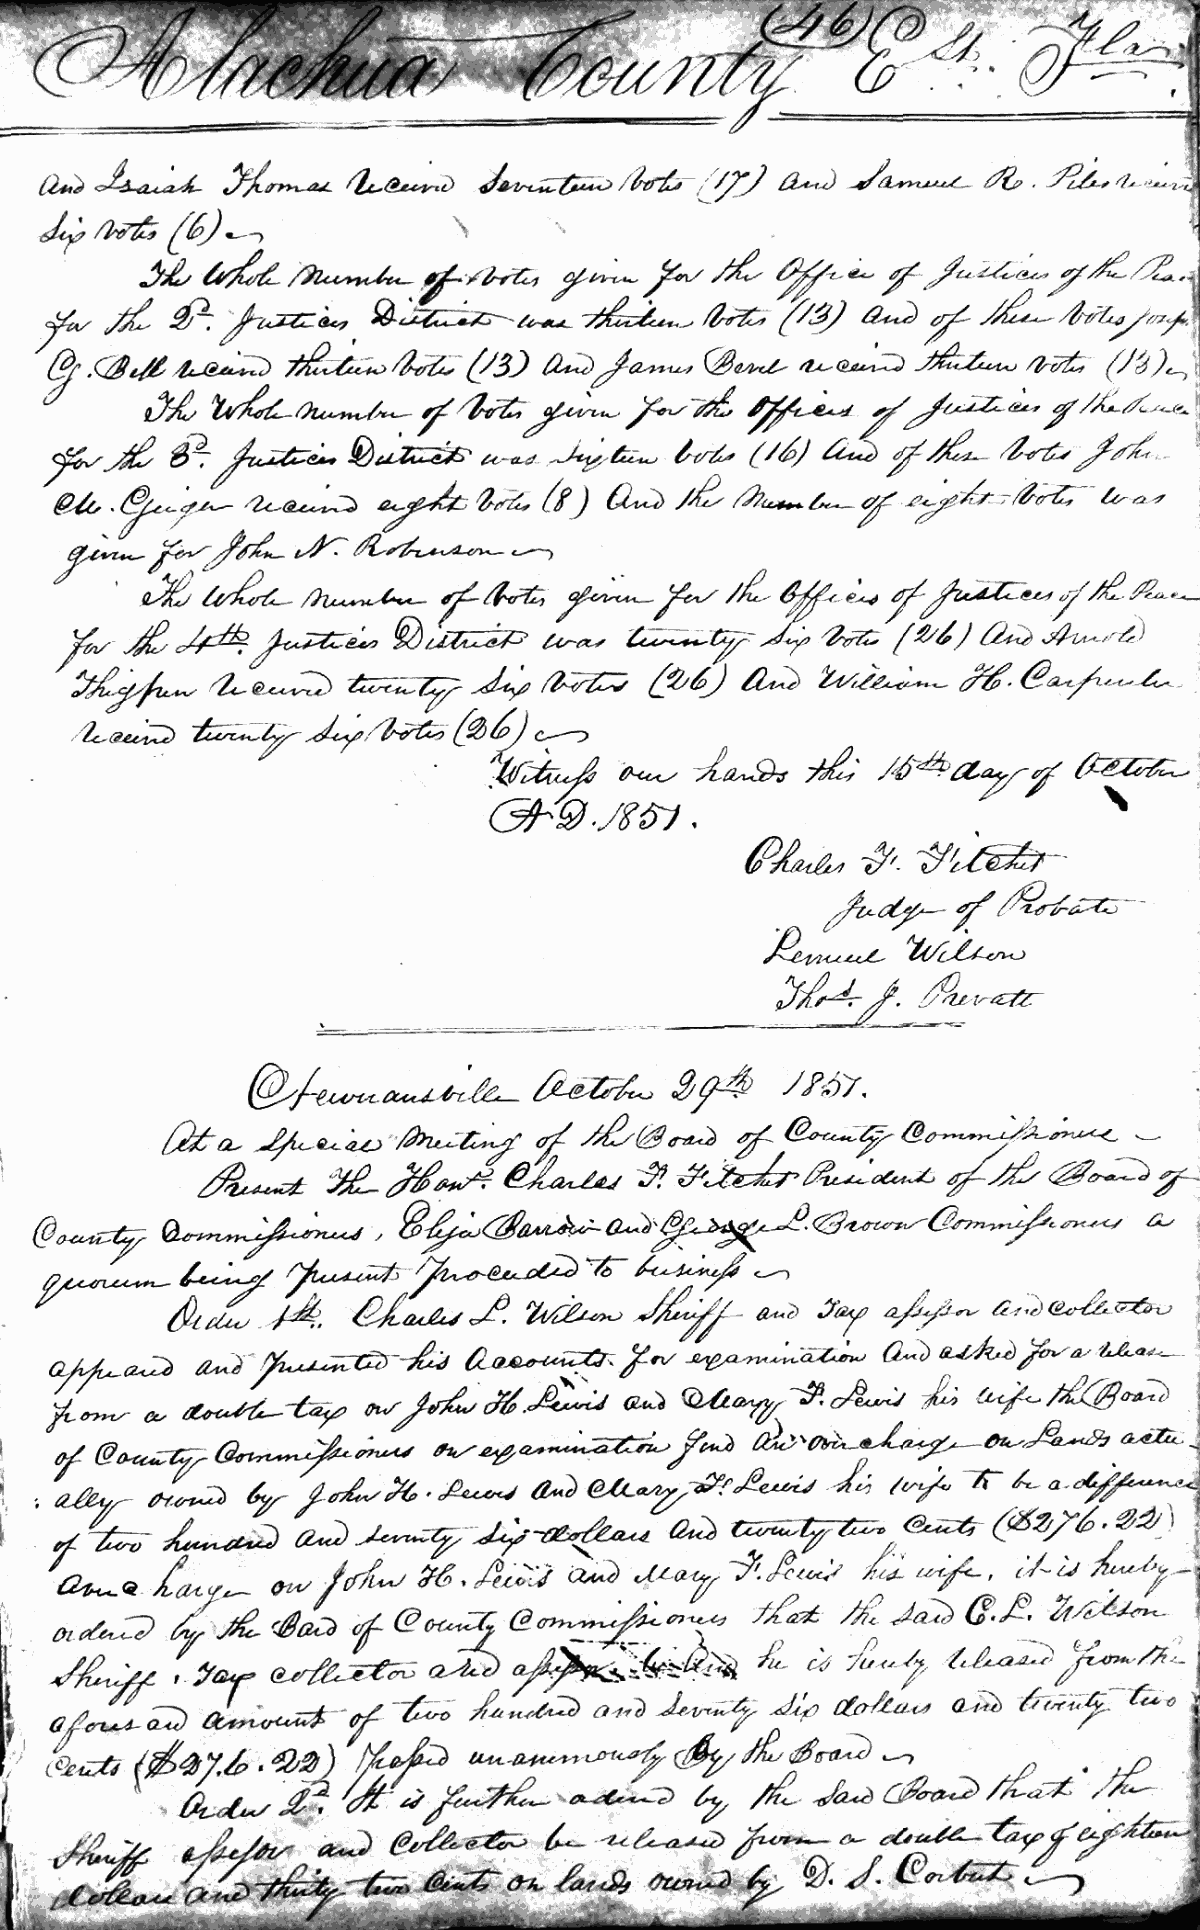 (46)
Alachua County Et. Fla.
and Isaiah Thomas received Seventeen Votes (17) and Samuel R. Piles receivd
Six Votes (6)
The Whole Number of Votes given for the Office of Justices of the Peace
for the 2d. Justices District was thirteen Votes (13) and of these Votes Joseph
G. Bell received thirteen Votes (13) and James Bevel received thirteen votes (13)
The Whole Number of Votes given for the Offices of Justices of the Peace
for the 3d. Justices District was Sixteen Votes (16) and of these Votes John
M. Geiger received eight Votes (8) And the Number of eight Votes was
given for John N. Robinson
The Whole Number of Votes given for the Offices of Justices of the Peace
for the 4th. Justices District was twenty Six Votes (26) And Arnold
Thigpen received twenty Six Votes (26) And William H. Carpenter
received twenty Six Votes (26)
Witness our hands this 15th day of October
A.D. 1851.
Charles F. Fitchet
Judge of Probate
Lemuel Wilson
Thos. J. Prevatt
Newnansville October 29th 1851.
At a Special Meeting of the Board of County Commissioners
Present The Honr. Charles F. Fitchet President of the Board of
County Commissioners, Elija Barrow and George L. Brown Commissioners a
quorum being present proceeded to business
Order 1st. Charles L. Wilson Sheriff and Tax assessor and collector
appeared and presented his Accounts for examination and asked for a release
from a double tax on John H. Lewis and Mary F. Lewis his wife the Board
of County Commissioners on examination find an over charge on Lands actu
ally owned by John H. Lewis and Mary F. Lewis his wife to be a difference
of two hundred and seventy six dollars and twenty two Cents ($276.22)
over charge on John H. Lewis and Mary F. Lewis his wife, it is hereby
ordered by the Board of County Commissioners that the said C. L. Wilson
Sheriff, Tax collector and assessor he is hereby released from the
aforesaid amount of two hundred and seventy six dollars and twenty two
Cents ($276.22) passed unanimously By the Board
Order 2d. It is further ordered by the said Board that the
Sheriff assessor and Collector be released from a double tax of eighteen
dollars and thirty two Cents on lands owned by D. S. Corbut